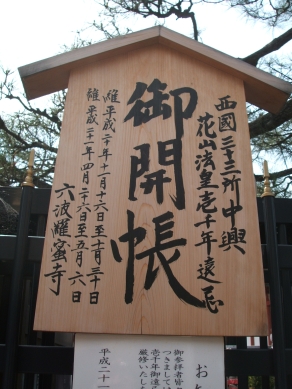 西國三十三所中興
花山法皇壱千年遠忌
御開帳
維平成二十年十一月十六日至十二月三十日
維平成二十一年四月二十六日至五月六日
六波羅蜜寺
御参拝者皆
つきましては
壱千年御遠
厳修いたし
平成二十一